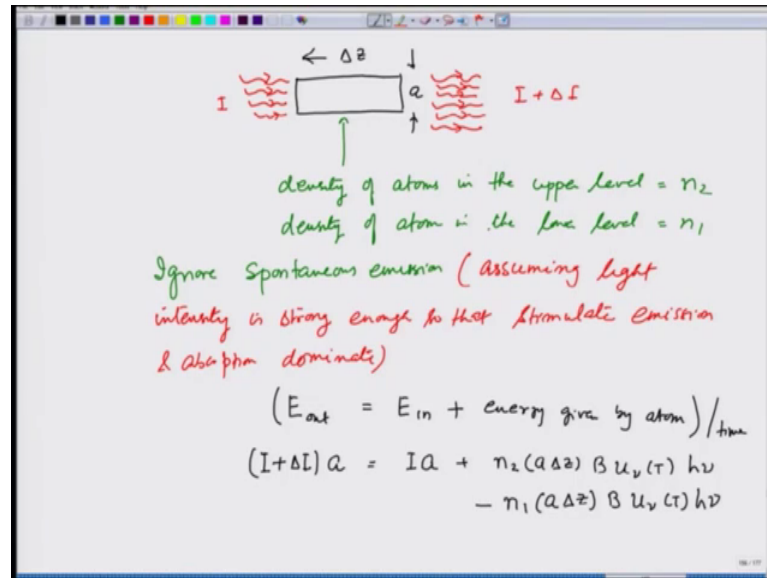 ← Δz ↓
I a I + ΔI
↑
density of atoms in the upper level = n₂
density of atom in the lower level = n₁
Ignore spontaneous emission (assuming light
intensity is strong enough so that stimulate emission
& absorption dominate)
(E_out = E_in + energy given by atom)/time
(I+ΔI)a = Ia + n₂(aΔz) B u_ν(T) hν
− n₁(aΔz) B u_ν(T) hν